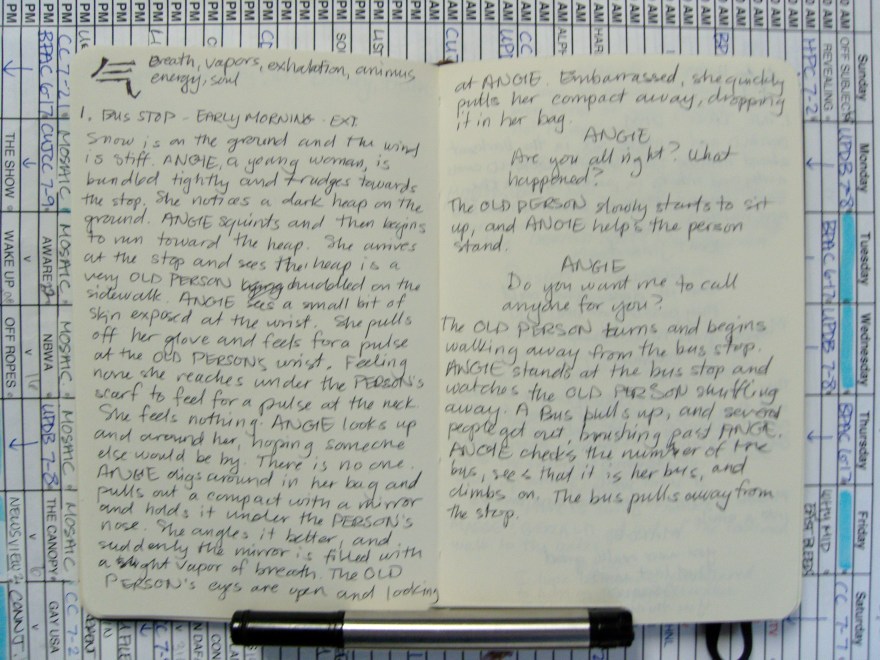 Breath, vapors, exhalation, animus
energy, soul
1. BUS STOP - EARLY MORNING - EXT.
Snow is on the ground and the wind
is stiff. ANGIE, a young woman, is
bundled tightly and trudges towards
the stop. She notices a dark heap on the
ground. ANGIE squints and then begins
to run toward the heap. She arrives
at the stop and sees the heap is a
very OLD PERSON huddled on the
sidewalk. ANGIE sees a small bit of
skin exposed at the wrist. She pulls
off her glove and feels for a pulse
at the OLD PERSON'S wrist. Feeling
none she reaches under the PERSON'S
scarf to feel for a pulse at the neck.
She feels nothing. ANGIE looks up
and around her, hoping someone
else would be by. There is no one.
ANGIE digs around in her bag and
pulls out a compact with a mirror
and holds it under the PERSON'S
nose. She angles it better, and
suddenly the mirror is filled with
a slight vapor of breath. The OLD
PERSON'S eyes are open and looking
at ANGIE. Embarrassed, she quickly
pulls her compact away, dropping
it in her bag.
ANGIE
Are you all right? What
happened?
The OLD PERSON slowly starts to sit
up, and ANGIE helps the person
stand.
ANGIE
Do you want me to call
anyone for you?
The OLD PERSON turns and begins
walking away from the bus stop.
ANGIE stands at the bus stop and
watches the OLD PERSON shuffling
away. A Bus pulls up, and several
people get out, brushing past ANGIE.
ANGIE checks the number of the
bus, sees that it is her bus, and
climbs on. The bus pulls away from
the stop.
Sunday
Monday
Tuesday
Wednesday
Thursday
Friday
Saturday
OFF SUBJECT
REVEALING
HPC 7-2
UPDB 7-8
BPAC 6/17
UPDB 7-8
BPAC 6/17
CC 7-7
THE SHOW
WAKE UP
OFF ROPES
NEWSVIEW
CWCC 7-9
AWARE
NBWA
UPDB 7-8
THE CANOPY
GAY USA
CC 7-2
BPAC 6/17
CC 7-21
MOSAIC
MOSAIC
MOSAIC
MOSAIC
MOSAIC